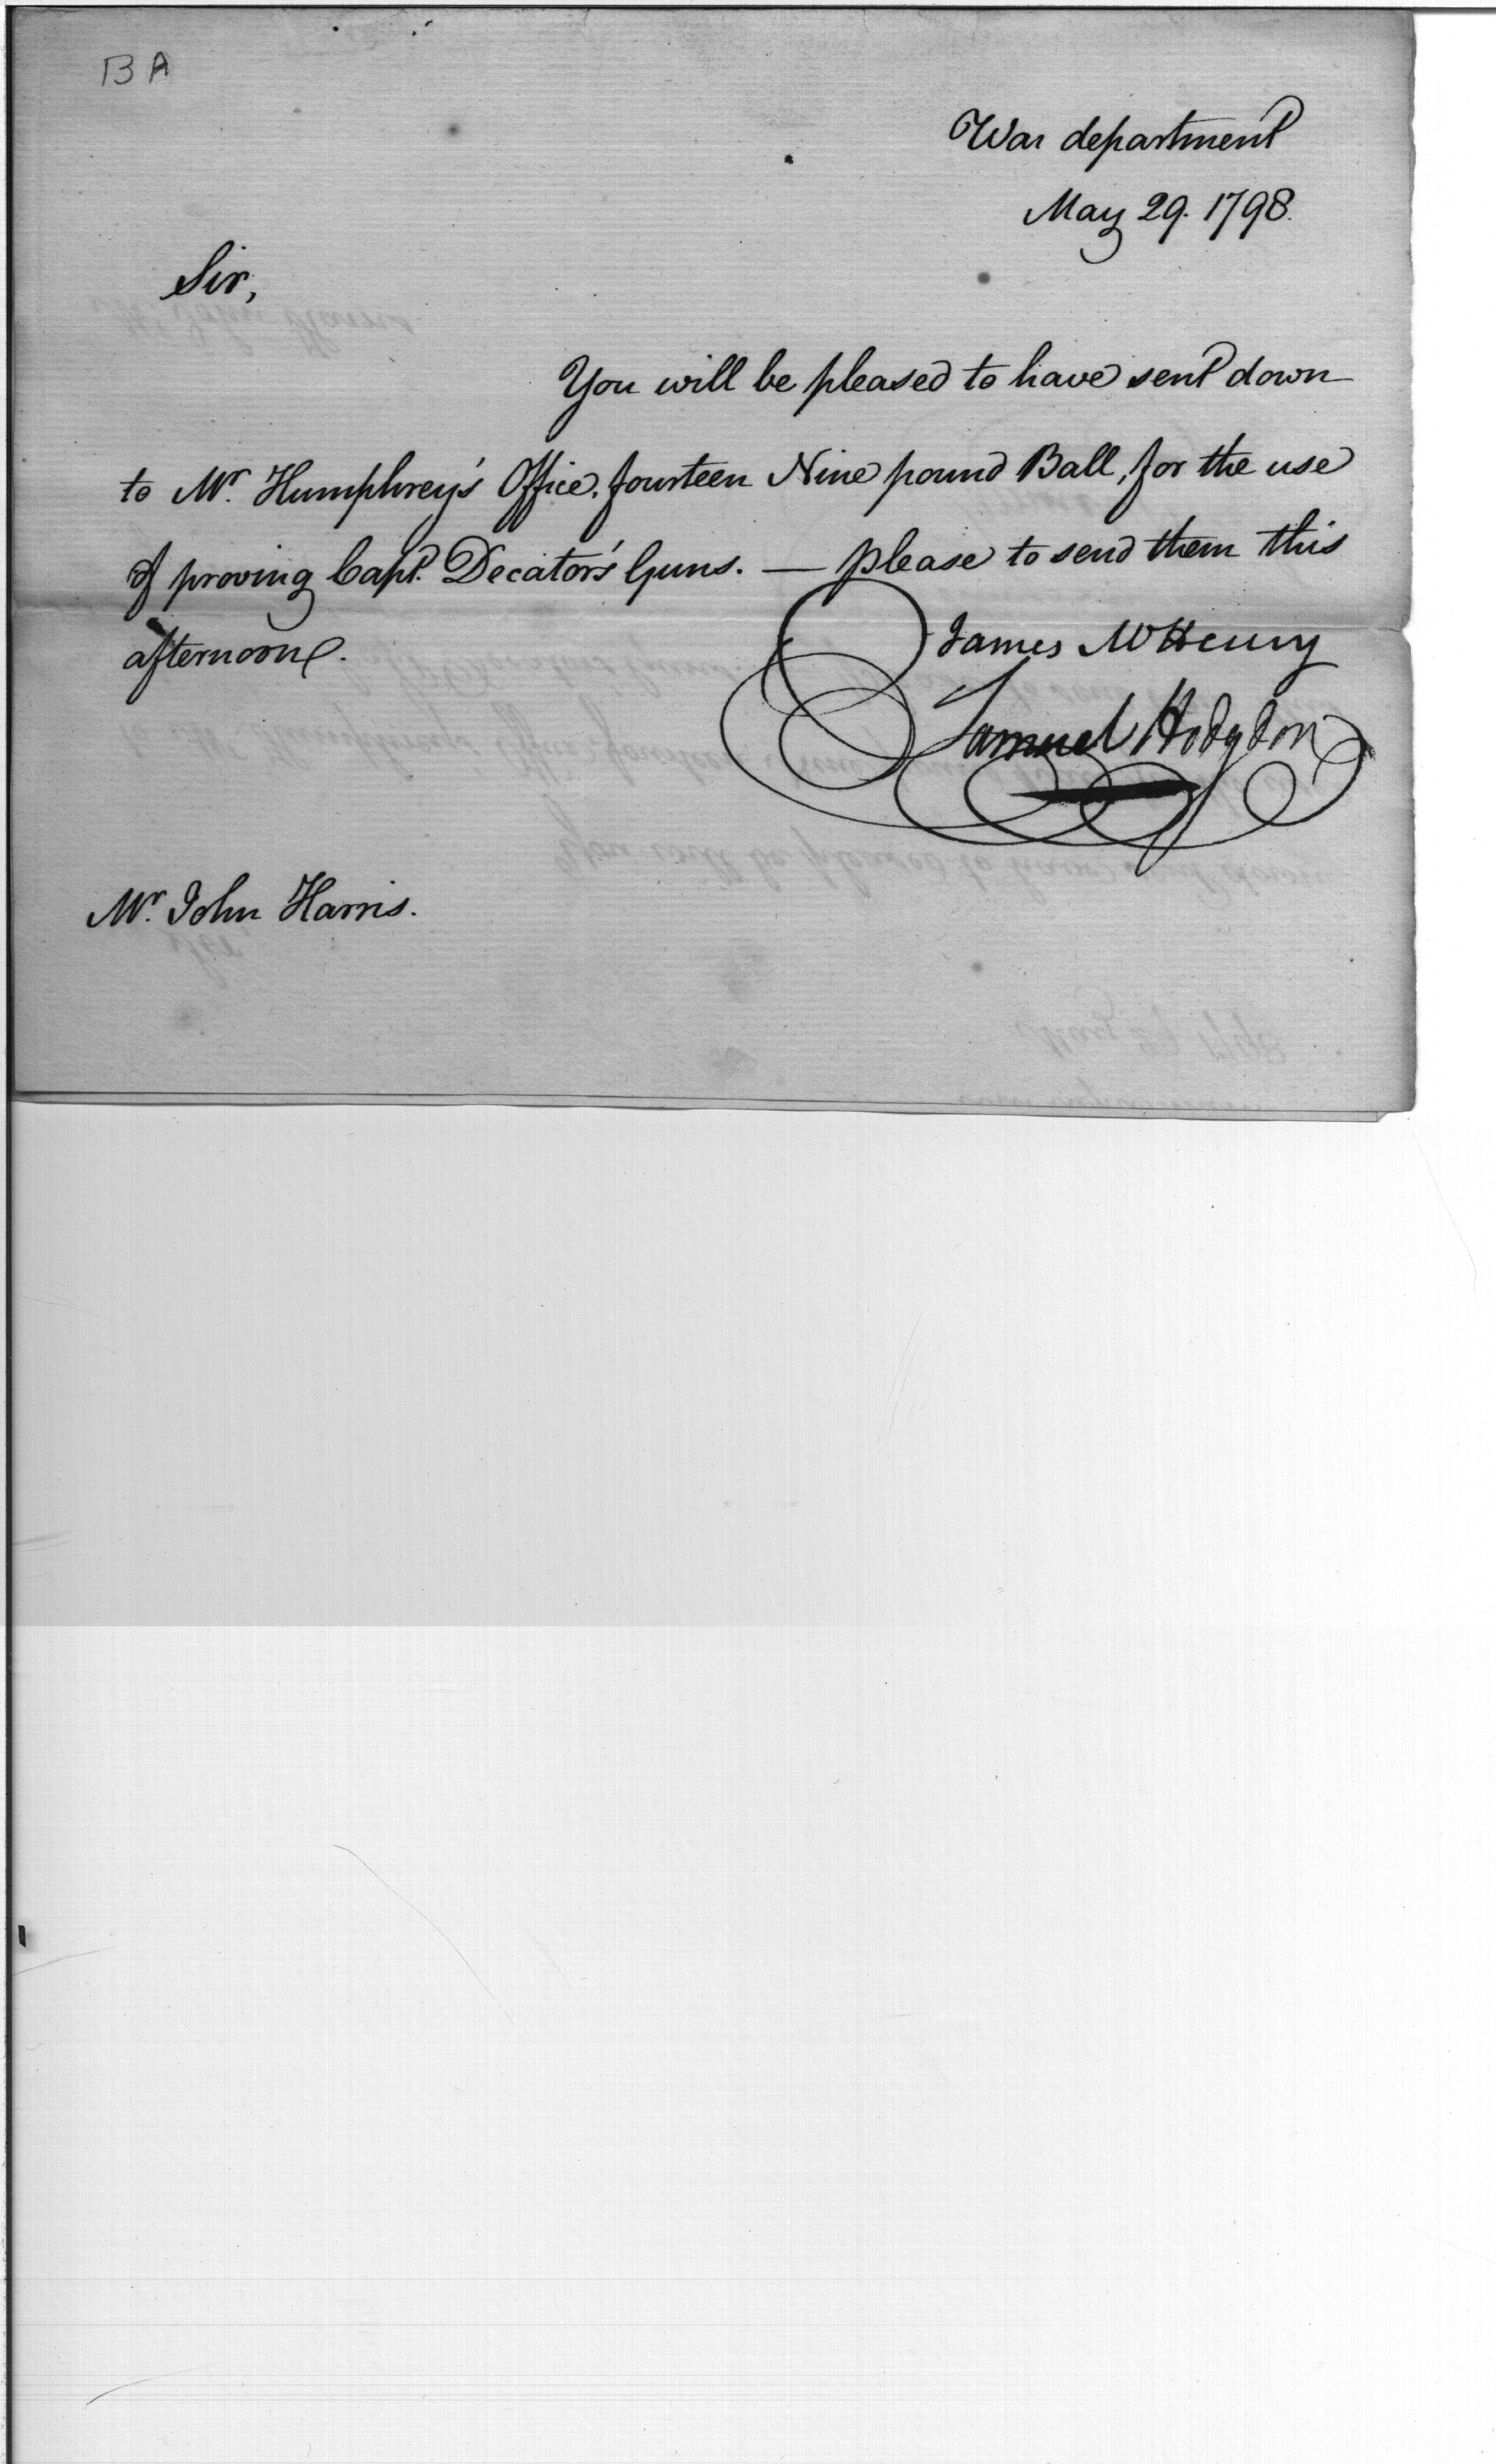 BA
War department
May 29. 1798.
Sir,
You will be pleased to have sent down
to Mr. Humphrey's Office, fourteen Nine pound Ball, for the use
of proving Capt. Decator's Guns. — please to send them this
afternoon.
James McHenry
Samuel Hodgdon
Mr. John Harris.